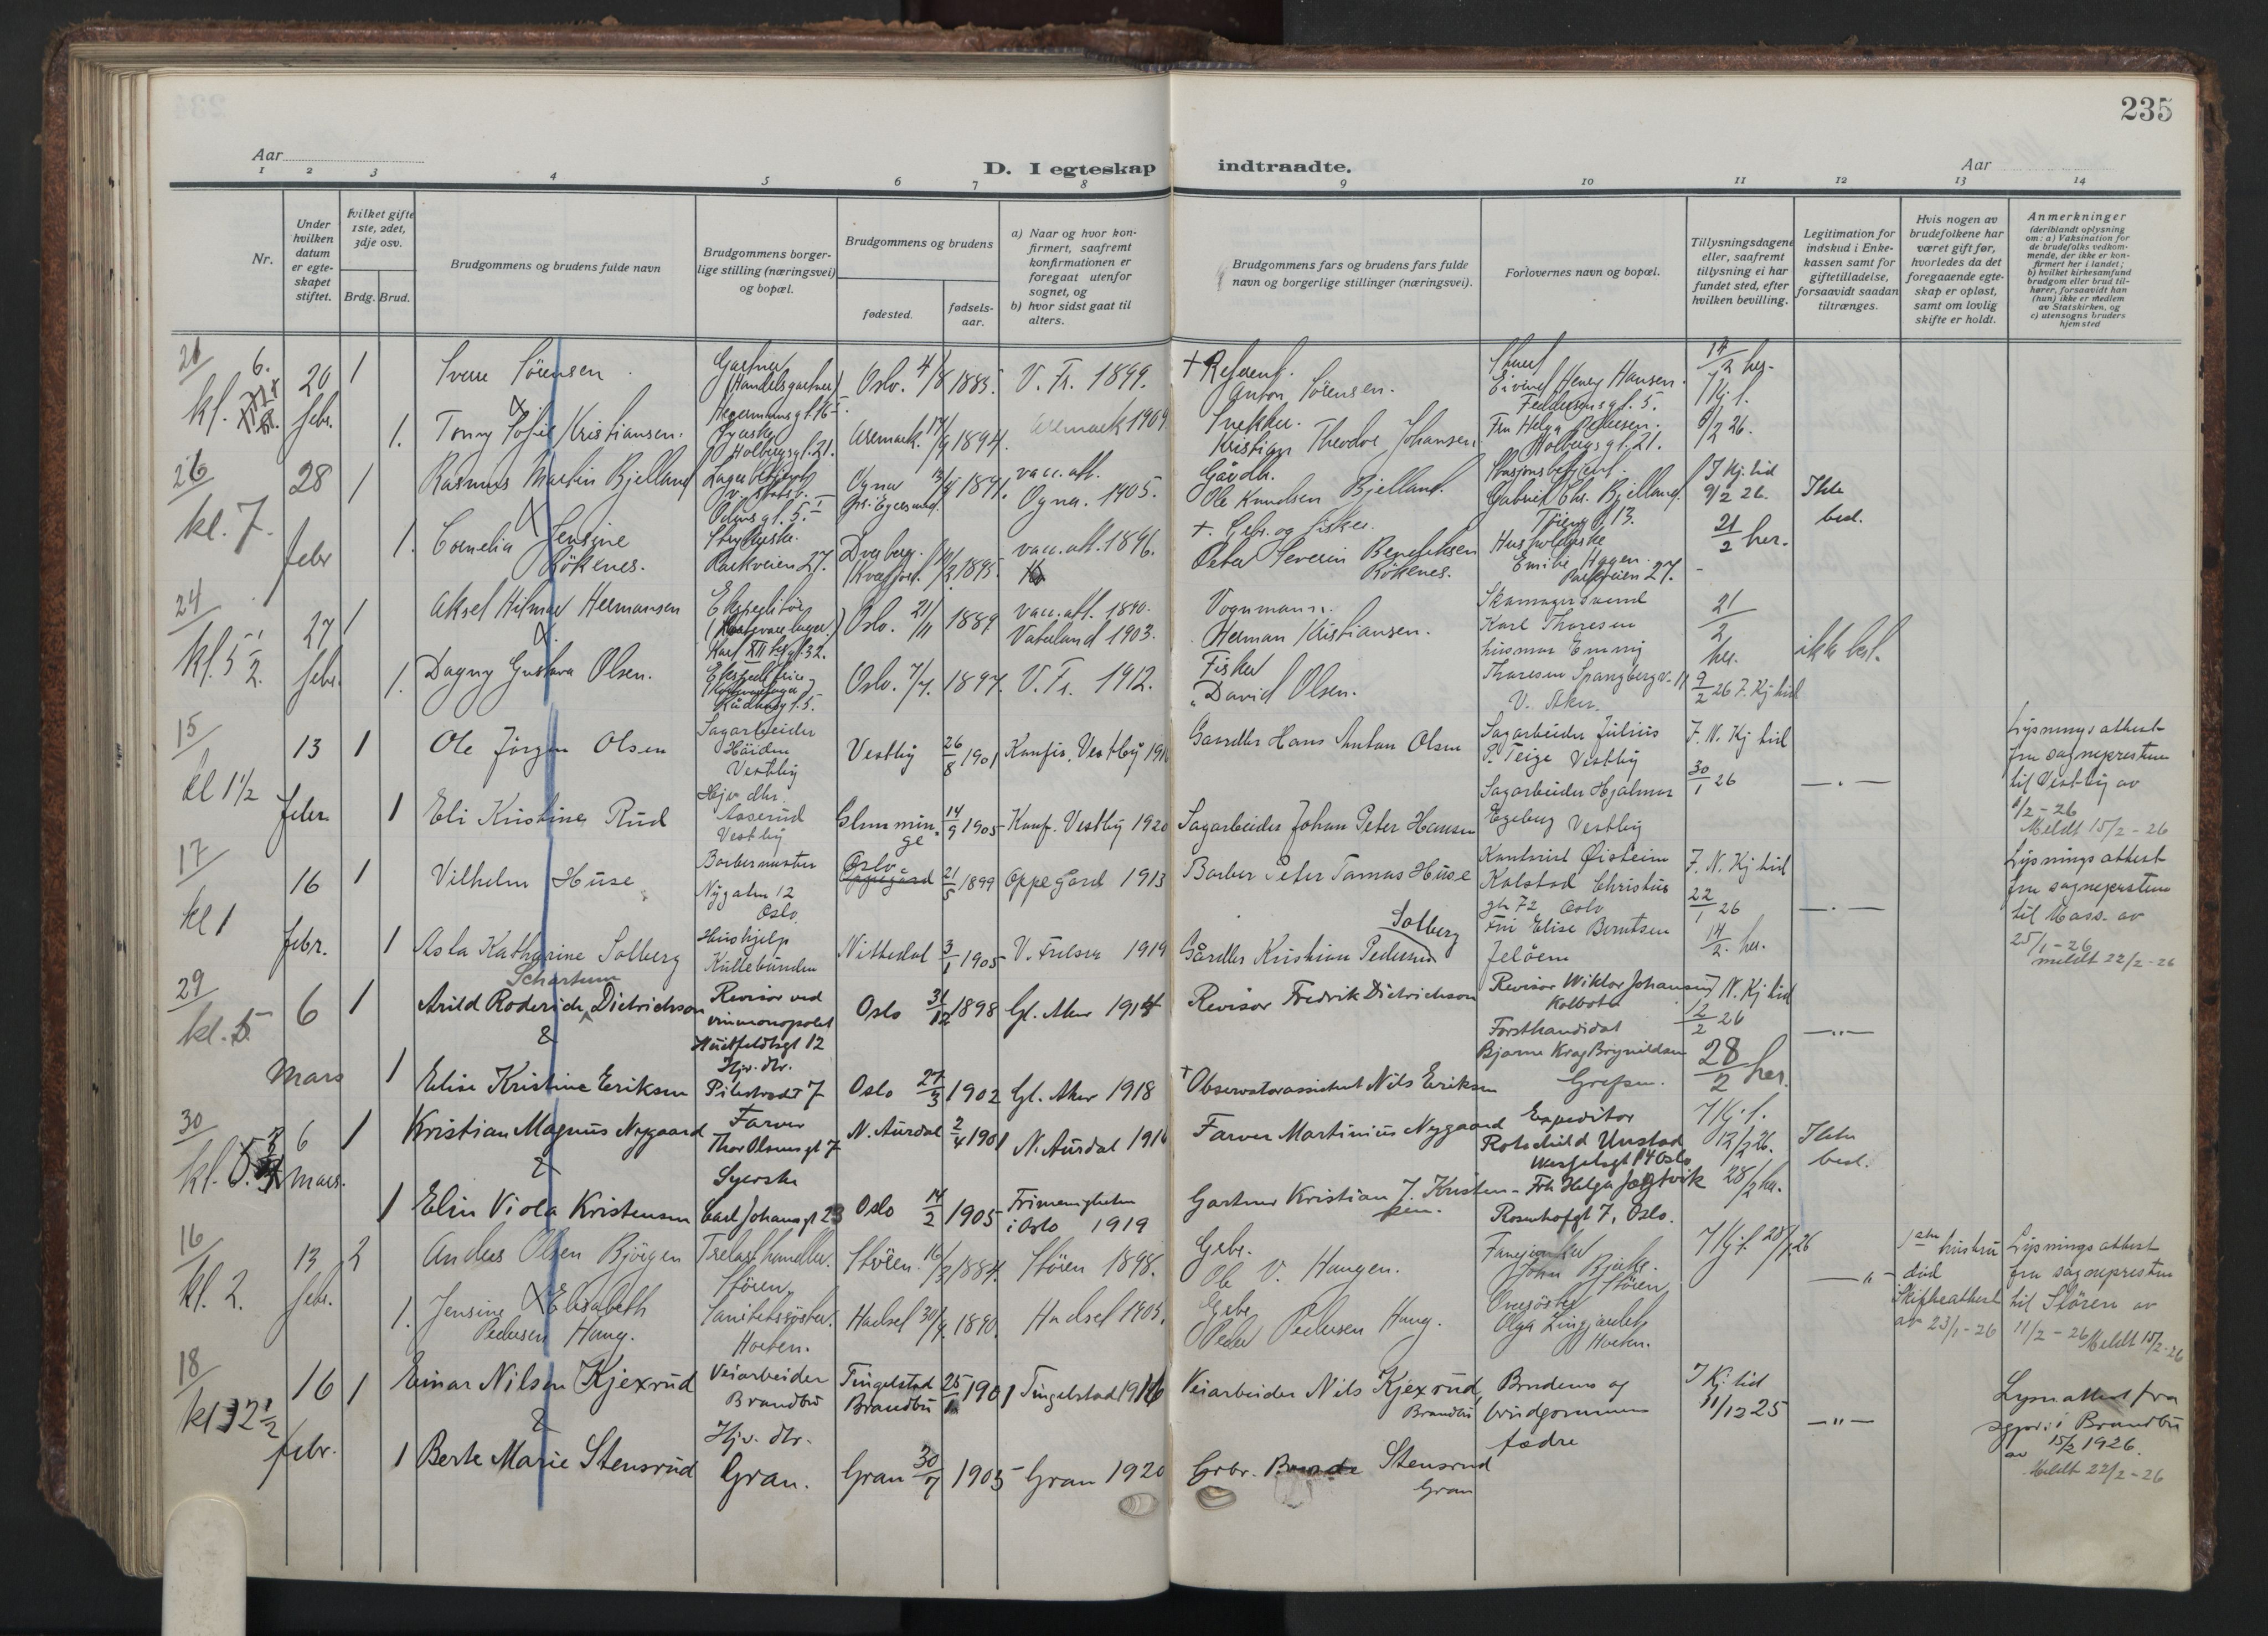 235
Aar
D. I egteskap indtraadte.
Aar
1 2 3 4 5 6 7 8 9 10 11 12 13 14
Nr.
Under hvilken datum er egteskapet stiftet.
hvilket gifte 1ste, 2det, 3dje osv.
Brdg. Brud.
Brudgommens og brudens fulde navn
Brudgommens borgerlige stilling (næringsvei) og bopæl.
Brudgommens og brudens
fødested.
fødselsaar.
a) Naar og hvor konfirmert, saafremt konfirmationen er foregaat utenfor sognet, og
b) hvor sidst gaat til alters.
Brudgommens fars og brudens fars fulde navn og borgerlige stillinger (næringsvei).
Forlovernes navn og bopæl.
Tillysningsdagene eller, saafremt tillysning ei har fundet sted, efter hvilken bevilling.
Legitimation for indskud i Enkekassen samt for giftetilladelse, forsaavidt saadan tiltrænges.
Hvis nogen av brudefolkene har været gift før, hvorledes da det foregaaende egteskap er opløst, samt om lovlig skifte er holdt.
Anmerkninger
(deriblandt oplysning om: a) Vaksination for de brudefolks vedkommende, der ikke er konfirmert her i landet; b) hvilket kirkesamfund brudgom eller brud tilhører, forsaavidt han (hun) ikke er medlem av Statskirken, og c) utensogns bruders hjemsted
21 kl. 6. 20 febr. 1
Sverre Sörensen
Gartner (Handelsgartner)
Oslo. 4/8 1885. V. Fr. 1899.
Anton Sörensen.
Eivind Henry Hansen.
Feddersensgt. 5.
14/2 her.
1. Tonny Sofie Kristiansen.
Syerske Holbergsgt. 21.
Aremark. 17/9 1894. Aremark 1909
Snekker.
Kristian Theodor Johansen
Fru Helga Pedersen.
Holbergsgt. 21.
26 kl. 7. 28 febr 1
Rasmus Martin Bjelland
Odinsgt. 5.
Ogna 1891. vacc. att.
Ogna. 1905.
Gårdbr.
Ole Knudsen Bjelland.
Gabriel Chr. Bjelland.
Töiengt. 13.
J Kj. tid 9/2 26.
Ikke bet.
1. Cornelia Jensine Rökenes.
Strykerske. Parkveien 27.
1895. vacc. att. 1896.
+ Gbr. og fisker.
Peter Severin Benediktsen Rökenes.
Husholderske
Emilie Hagen
Parkveien 27.
21/2 her.
24 kl. 5 1/2. 27 febr. 1
Aksel Hilmar Hermansen
Ekspeditör
Karl XII tes gt. 32.
Oslo. 21/11 1889 vacc. att. 1890.
Vaterland 1903.
Vognmann.
Herman Kristiansen.
Skomagersvend
Karl Thoresen
21/2 her.
ikke bet.
1. Dagny Gustava Olsen.
Oslo. 7/7. 1897. V. Fr. 1912.
Fisker
David Olsen.
husmor Emmy
Thoresen Spangbergv. 11
V. Aker.
9/2 26 J. Kj tid
15 kl 1 1/2 13 febr. 1
Ole Jörgen Olsen
Sagarbeider Häiden Vestby
Vestby 26/8 1901 Konfir. Vestby 1916
Gaardbr Hans Anton Olsen
Sagarbeider Julius
P. Teige Vestby
J. N. Kj tid
30/1 26
Lysningsattest
fra sognepresten
til Vestby av
6/2 - 26
Meldt 15/2 - 26
1 Eli Kristine Rud
Hjv. dtr. Aaserud Vestby
Glemminge 14/9 1905 Konf. Vestby 1920
Sagarbeider Johan Peter Hansen
Sagarbeider Hjalmar
Egeberg Vestby
17 kl 1 16 febr. 1
Vilhelm Huse
Barbermester Nygaten 12 Oslo
Oslo 21/5 1899 Oppegård 1913
Barber Peter Tomas Huse
Kontorist Öistein
Kolstad Christies
gt 72 Oslo
J. N. Kj tid
22/1 26
Lysningsattest
fra sognepresten
til Moss. av
25/1 - 26
meldt 22/2 - 26
1 Asla Katharine Solberg
Hushjelp Kullebunden
Nittedal 3/1 1905 V. Frelser 1919
Solberg
Gårdbr Kristian Pedersen
Fru Elise Berntsen
Jelöen
14/2. her.
29 kl. 5 6 Mars 1
Schartum
Arild Roderich Dietrichson
&
Revisor ved vinmonopolet
Huitfeldtsgt 12
Oslo 31/12 1898 Gl. Aker 1914
Revisor Fredrik Dietrichson
Revisor Wiktor Johansen
Kolbotn
J N. Kj tid
12/2 26
1 Elise Kristine Eriksen
Hjv. dtr. Pilestredet 7
Oslo 27/3 1902 Gl. Aker 1918
+ Observatorassistent Nils Eriksen
Forstkandidat
Bjarne Krag Brynildsen
Grefsen.
28/2 her.
30 kl. 5. 6 mars. 1
Kristian Magnus Nygaard
&
Farver Thor Olsensgt 7
N. Aurdal 2/4 1901 N. Aurdal 1916
Farver Martinius Nygaard
Expeditör
Rotschild Unstad
J Kj. t. 12/2 26.
Ikke bet.
1 Elin Viola Kristensen
Syerske Carl Johansgt 23
Oslo 14/2 1905 Frimenigheten i Oslo 1919
Gartner Kristian J. Kristensen.
Frk Helga Jegtvik
Rosenhofgt 7, Oslo.
28/2 her.
16 kl. 2. 13 febr. 2
Anders Olsen Björgen
Trelasthandler. Stören
Stören. 1884. Stören 1898.
Gbr.
Ole V. Haugen.
Stören
J Kj. t. 26
1ste hustru död
Skifteattest av 23/1 - 26
Lysningsattest
fra sognepresten
til Stören av
11/2 - 26 Meldt 15/2 - 26
1. Jensine Elisabeth Pedersen Haug.
Sanitetssöster. Horten.
Hadsel 1890. Hadsel 1905.
Gbr.
Peder Pedersen Haug.
Oversöster
Horten.
18 kl 12 1/2 16 febr. 1
Einar Nilsen Kjexrud
&
Veiarbeider Brandbu
Tingelstad Brandbu 25/1 1901 Tingelstad 1916
Veiarbeider Nils Kjexrud,
Brandbu
Brudens og
brudgommens
fædre
J Kj. tid
11/12 25
Lysn. attest fra
sgpr. i Brandbu
av 15/2 1926.
Meldt 22/2 - 26
1 Berte Marie Stensrud
Hjv. dtr. Gran.
Gran 30/7 1903 Gran 1920
Grbr. Stensrud
Gran